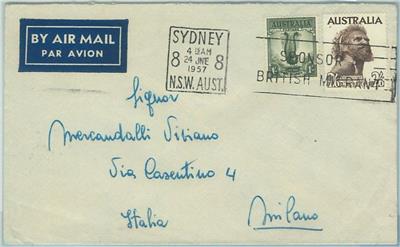 BY AIR MAIL
PAR AVION
SYDNEY
4 - AM
8 24 JNE 8
1957
N.S.W. AUST.
AUSTRALIA
AUSTRALIA
SPONSOR
BRITISH MIGRANT
2/6
Signor
Mercandalli Vibiano
Via Casentino 4
Milano
Italia